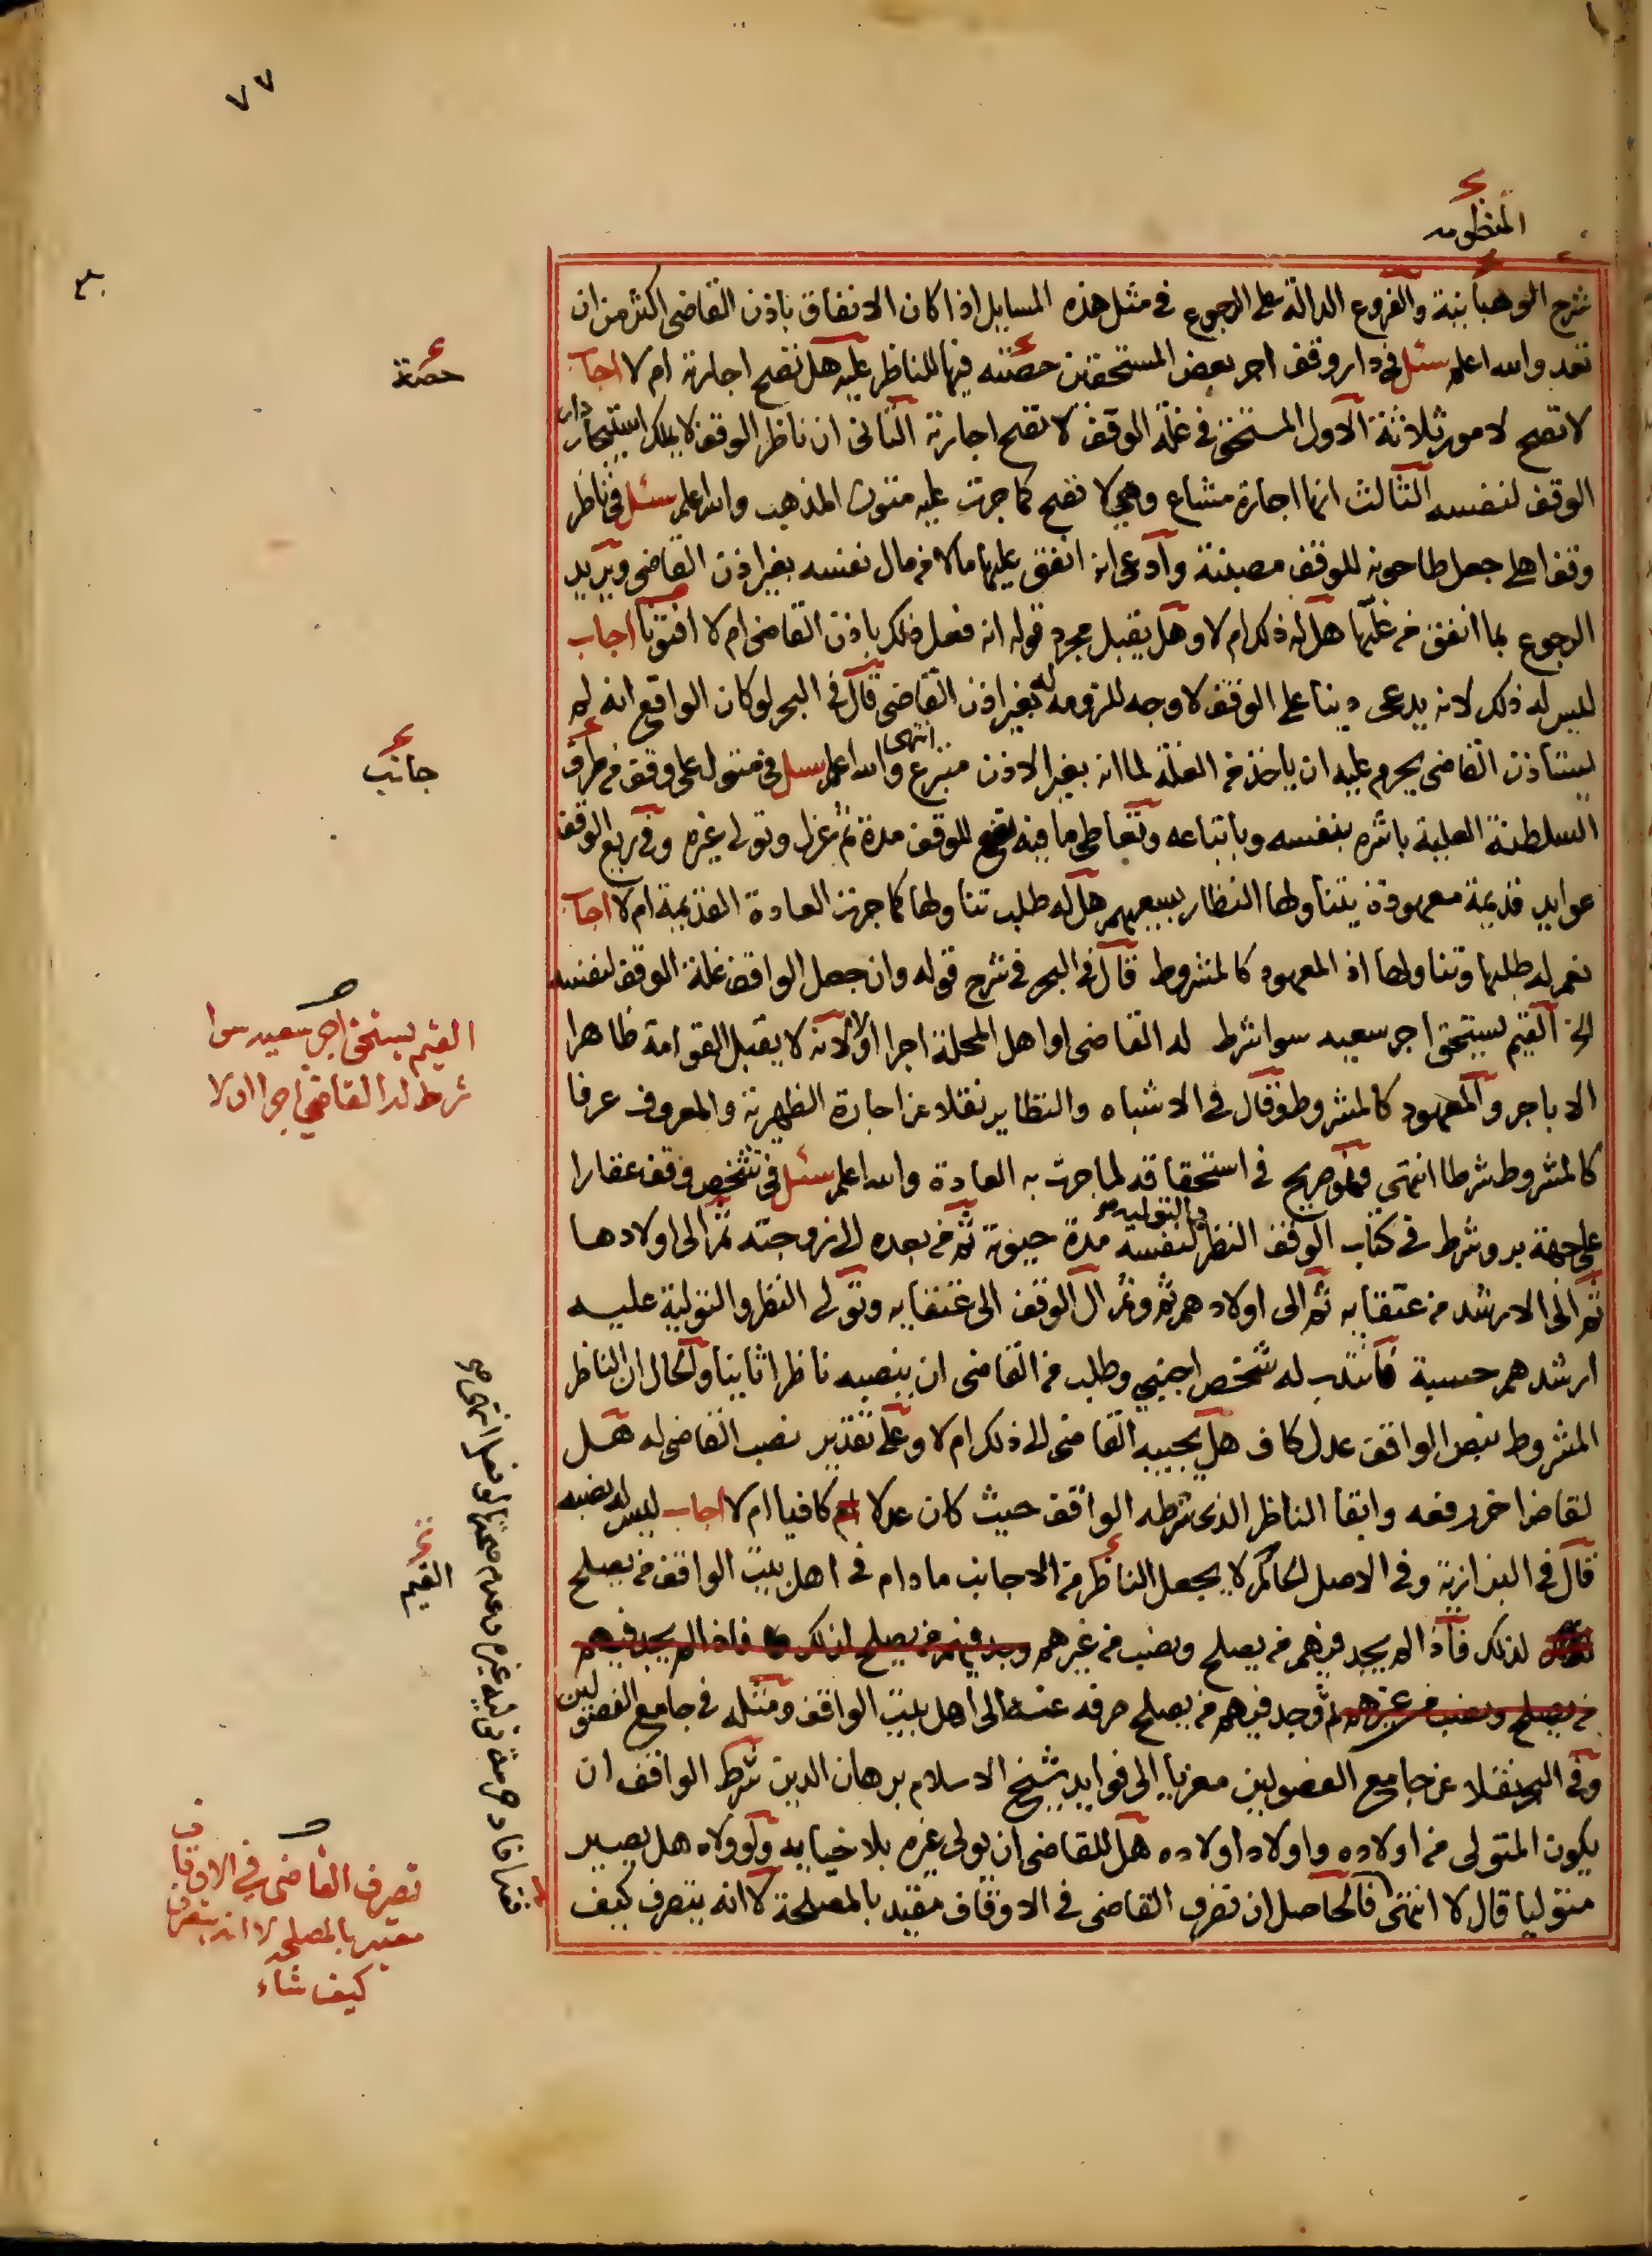 ٧٧
المنظومه
شرح الوهبانية والفروع الدالة على الرجوع في مثل هذه المسايل اذا كان الانفاق باذن القاضي اكثر من ان
تعد والله اعلم سئل في دار وقف اجر بعض المستحقين حصته فيها للناظر عليه هل تصح اجارته ام لا اجاب
لا تصح لامور ثلاثة الاول المستحق في غلة الوقف لا تصح اجارته الثاني ان ناظر الوقف لا يملك استيجار دار
الوقف لنفسه الثالث انها اجارة مشاع وهي لا تصح كما جرت عليه متون المذهب والله اعلم سئل في ناظر
وقف اهلي جعل طاحونه للوقف مصبنة وادعى انه انفق عليها مالا من مال نفسه بغير اذن القاضي ويريد
الرجوع بما انفق من غلتها هل له ذلك ام لا وهل يقبل مجرد قوله انه فعل ذلك باذن القاضي ام لا افتونا اجاب
ليس له ذلك لانه يدعي دينا على الوقف لا وجه للزومه له بغير اذن القاضي قال في البحر لو كان الواقع انه لم
يستاذن القاضي يحرم عليه ان ياخذ من الغلة لما انه بغير الاذن متبرع انتهى والله اعلم سئل في متول على وقف من طرف
السلطنة العلية باشره بنفسه وباتباعه وتعاطى ما فيه نفع للوقف مدة ثم عزل وتولى غيره وفي ريع الوقف
عوايد قديمة معهودة يتناولها النظار بسعيهم هل له طلب تناولها كما جرت العادة القديمة ام لا اجاب
نعم له طلبها وتناولها اذ المعهود كالمشروط قال في البحر في شرح قوله وان جعل الواقف غلة الوقف لنفسه
الخ القيم يستحق اجر سعيه سوا شرط له القاضي او اهل المحلة اجرا اولا لانه لا يقبل القوامة ظاهرا
الا باجر والمعهود كالمشروط وقال في الاشباه والنظاير نقلا عن اجارة الظهيرية والمعروف عرفا
كالمشروط شرطا انتهى فهو صريح في استحقاقه لما جرت به العادة والله اعلم سئل في شخص وقف عقارا
على جهة بر وشرط في كتاب الوقف النظر والتوليه لنفسه مدة حيوته ثم من بعده الى زوجته ثم الى اولادها
ثم الى الارشد من عتقايه ثم الى اولادهم ثم وثم ال الوقف الى عتقايه وتولى النظر والتولية عليه
ارشدهم حسبة فانتدب له شخص اجنبي وطلب من القاضي ان ينصبه ناظرا ثانيا والحال ان الناظر
المشروط بنص الواقف عدل كاف هل يجيبه القاضي الى ذلك ام لا وعلى تقدير نصب القاضي له هل
لقاض اخر رفعه وابقا الناظر الذي شرطه الواقف حيث كان عدلا كافيا ام لا اجاب ليس له نصبه
قال في البزازية وفي الاصل الحاكم لا يجعل الناظر من الاجانب ما دام في اهل بيت الواقف من يصلح
لذلك فاذا لم يجد فيهم من يصلح ونصب من غيرهم وجد فيهم من يصلح لذلك فاذا لم يجد فيهم
من يصلح ونصب من غيرهم ثم وجد فيهم من يصلح صرفه عنه الى اهل بيت الواقف ومثله في جامع الفصولين
وفي البحر نقلا عن جامع الفصولين معزيا الى فوايد شيخ الاسلام برهان الدين شرط الواقف ان
يكون المتولي من اولاده واولاد اولاده هل للقاضي ان يولي غيره بلا خيانة ولو ولاه هل يصير
متوليا قال لا انتهى فالحاصل ان تصرف القاضي في الاوقاف مقيد بالمصلحة لا انه يتصرف كيف
حصته
جانب
القيم يستحق اجر سعيه سوا
شرط له القاضي اجرا اولا
القيم
تصرف القاضي في الاوقاف
مقيد بالمصلحه لا انه يتصرف
كيف شاء